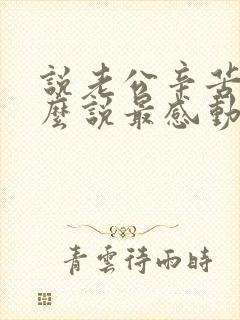 說老公辛苦
麼說最感動
青雲待雨時